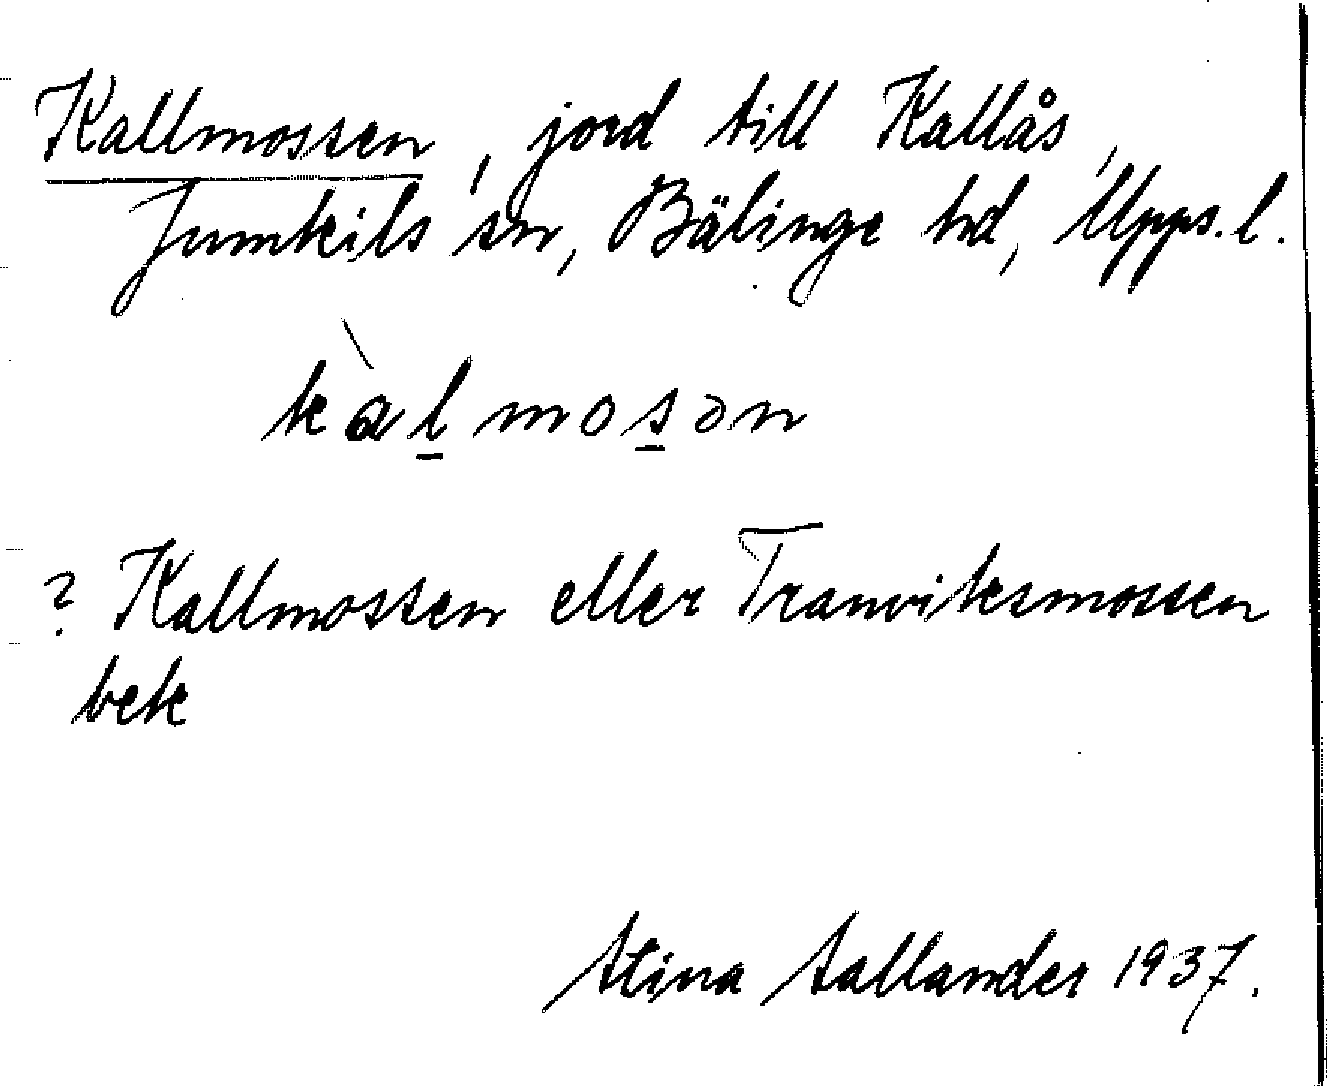 Kallmossen, jord till Kallås,
Jumkils sn, Bälinge hd, Upps. l.
kàl̲mos̲ən
? Kallmossen eller Tranviksmossen
bek
Stina Sallander 1937.